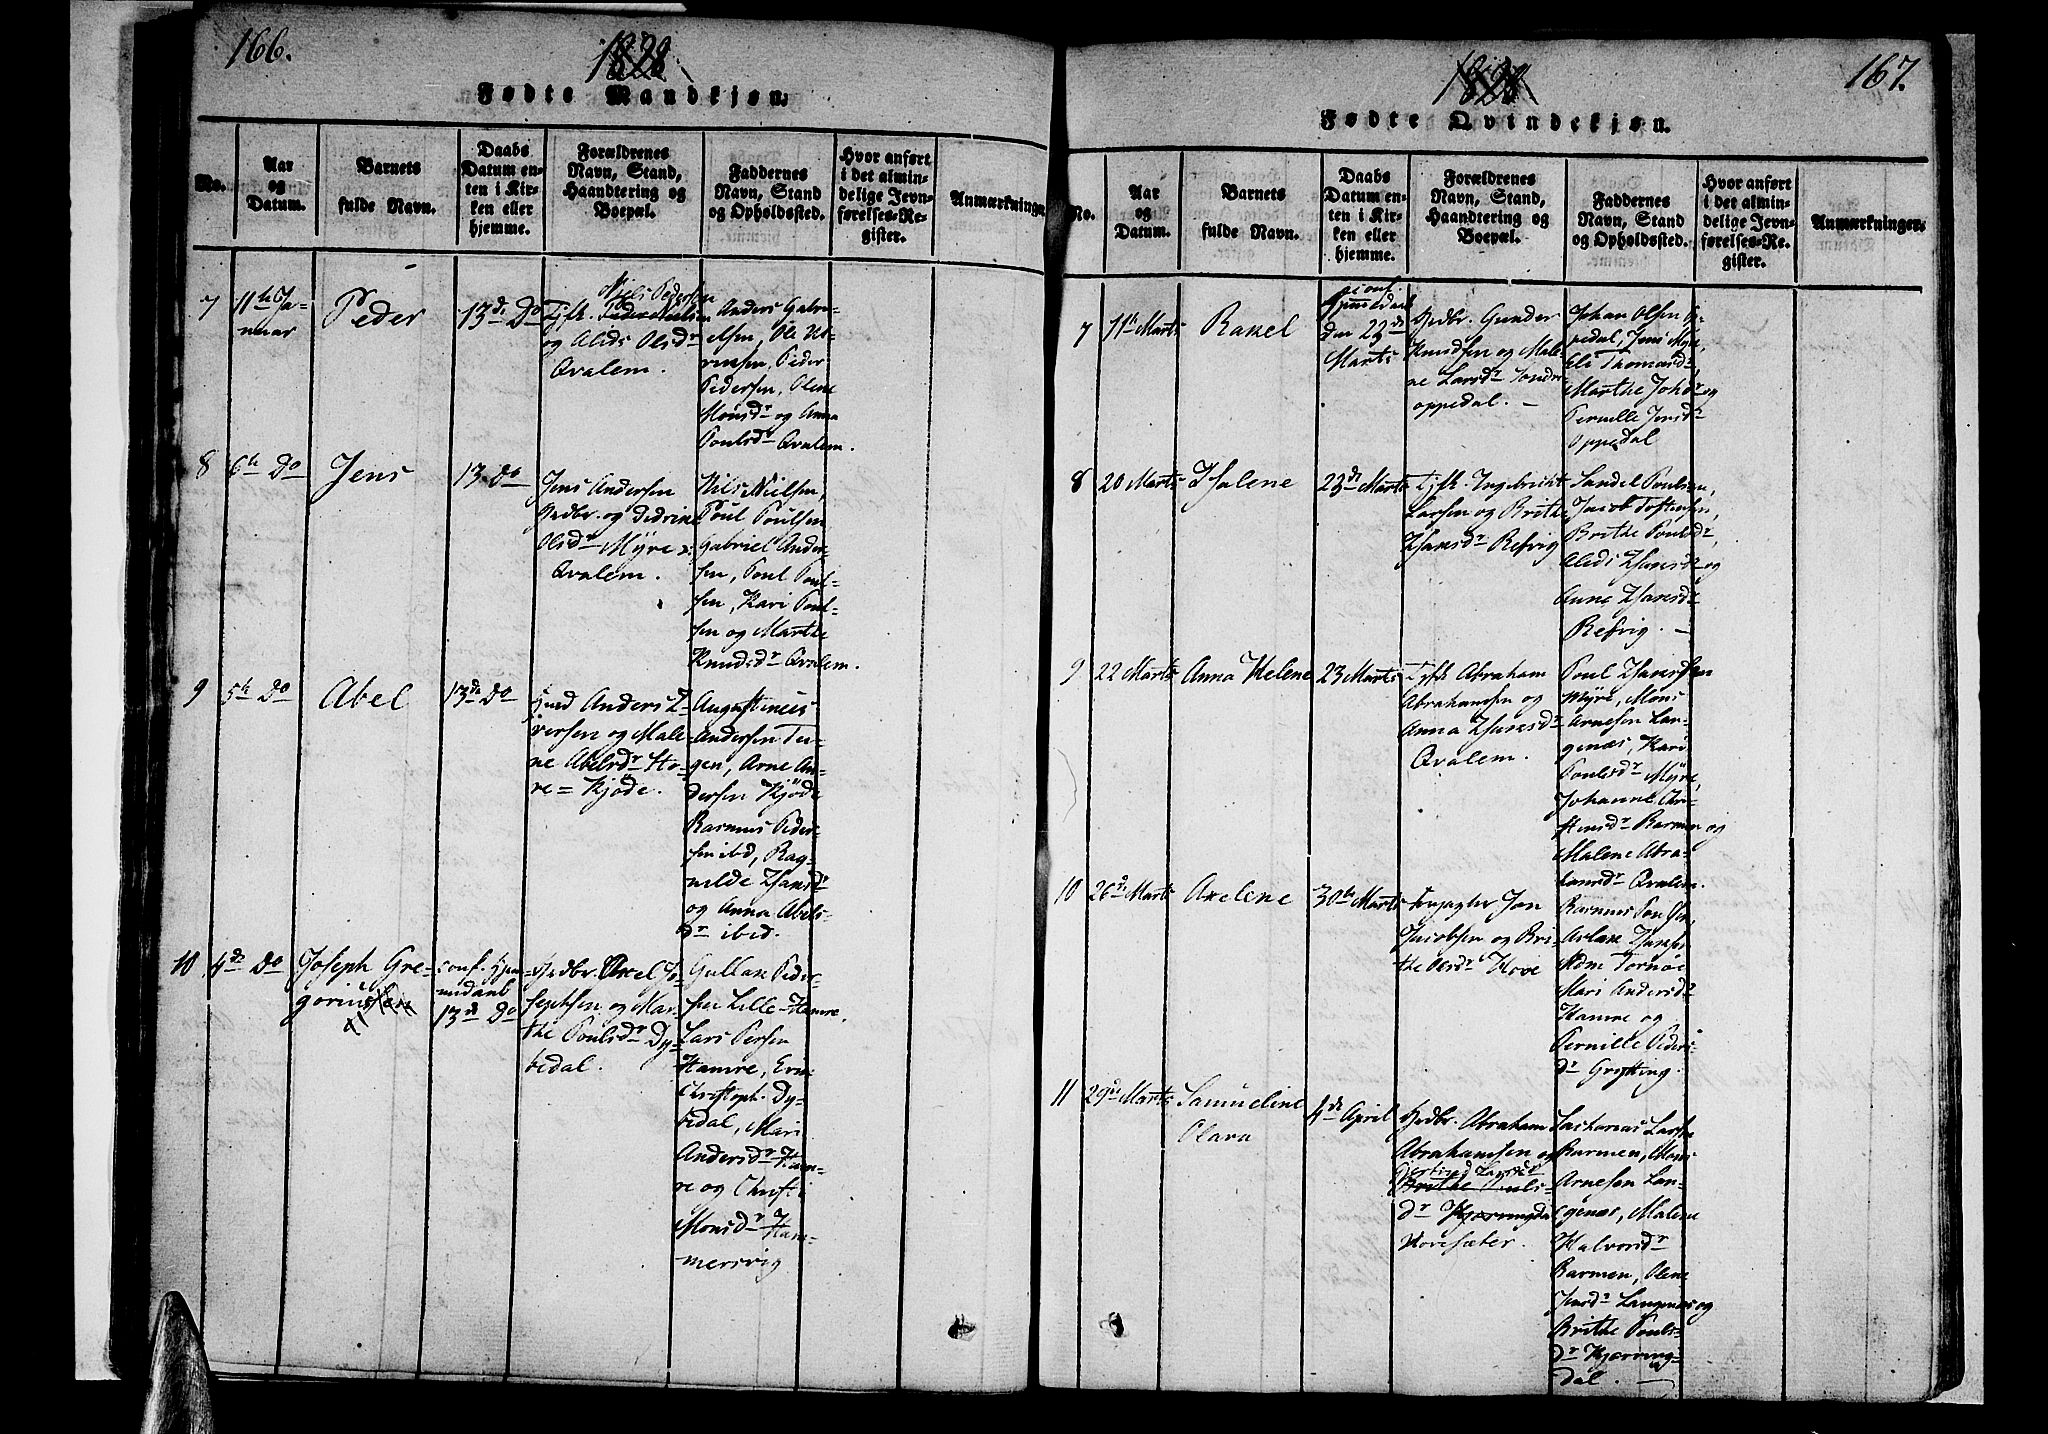 166.
1828
Fødte Mandkjøn.
No.
Aar
og
Datum.
Barnets
fulde Navn.
Daabs
Datum en-
ten i Kir-
ken eller
hjemme.
Forældrenes
Navn, Stand,
Haandtering og
Boepæl.
Faddernes
Navn, Stand
og Opholdssted.
Hvor anført
i det almin-
delige Jevn-
førelses-Re-
gister.
Anmærkninger
7
11te Ja-
nuar
Peder
13de Do
Niels Pedersen
og Alids Olsdr
Qvalem.
Anders Gabri-
elsen, Ole
Peder
Pedersen, Olene
Monsdr og Anna
Poulsdr Qvalem.
8
6te Do
Jens
13 Do
Jens Andersen
Gdbr. og Didrine
Olsdr Myre
Qvalem.
Nils Nielsen,
Poul Poulsen
Gabriel Ander-
sen, Poul Poul-
sen, Kari Poul-
sen og Marthe
Knudsdr Qvalem.
9
5te Do
Abel
13de Do
Huusmd Anders I-
versen og Male-
ne Abelsdr Ho-
re=Kjøde.
Augustinus
Andersen Tu-
gen, Arne An-
dersen Kjøde
Rasmus Peder-
sen ibd, Rag-
nilde Hansdr
og Anna Abels-
dr ibid.
10
4de Do
Joseph Gre-
gorius
conf. hjem-
medaab
13de Do
Gdbr. Axel Jo-
sephsen og Mar-
the Poulsdr Dy-
bedal.
Gullak Peder-
sen Lille-Hamre,
Lars Persen
Hamre,
Christoph. Dy-
bedal, Mari
Andersdr Ham-
re og Christi
Monsdr Ham-
mersvig
167.
1828
Fødte Qvindekjøn.
No.
Aar
og
Datum.
Barnets
fulde Navn.
Daabs
Datum en-
ten i Kir-
ken eller
hjemme.
Forældrenes
Navn, Stand,
Haandtering og
Boepæl.
Faddernes
Navn, Stand
og Opholdssted.
Hvor anført
i det almin-
delige Jevn-
førelses-Re-
gister.
Anmærkninger.
7
11te Marts
Rakel
conf.
hjemmedaab
den 23de
Marts
Gdbr. Gunder
Knudsen og Male-
ne Larsdr Indre
oppedal. –
Johan Olsen Op-
pedal, Jens Myre,
Eli Thomasdr,
Marthe Johsdr og
Pernille Jensdr
Oppedal
8
20 Marts
Halene
23de Marts
Tjfk. Ingebrikt
Larsen og Brithe
Hansdr Refvig
Sandel Poulsen,
Jacob Toftensen,
Brithe Poulsdr,
Aleds Hansdr og
Anne Hansdr
Refvig. –
9
22 Marts
Anna Helene
23 Marts
Tjfk Abraham
Abrahamsen og
Anna Hansdr
Qvalem.
Poul Hansen
Myre, Mons
Arnesen Lan-
genæs, Kari
Poulsdr Myre,
Johanne Chri-
stensdr Barmen og
Malene Abra-
hamsdr Qvalem.
10
26de Marts
Axelene
30te Marts
Jon
Jacobsen og Bri-
the Olsdr Hove
Rasmus
Aslak Hansen
Tornøe
Mari Andersdr
Hamre og
Pernille Peders-
dr Grytting.
11
29de Marts
Samueline
Olava
4de April
Gdbr. Abraham
Abrahamsen og
Gjertrud Larsdr
Brithe Pouls-
dr Kjerringdal
Hovesæter.
Zacharias Larsen
Barmen, Mons
Arnesen Lan-
genæs, Malene
Halvorsdr
Barmen, Olene
Jensdr Langenæs og
Brithe Pouls-
dr Kjerring-
dal. –